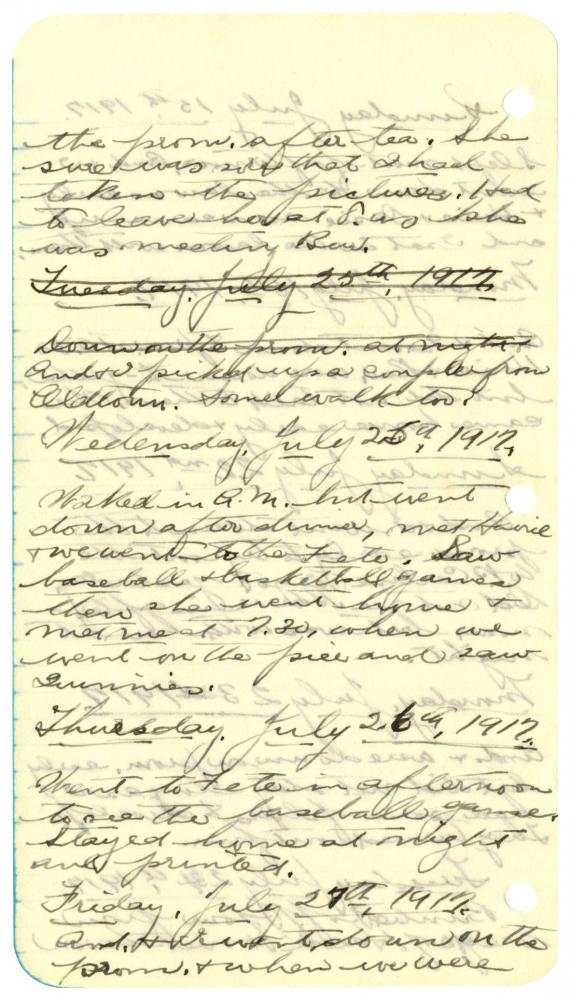 the prom. after tea. She
sure was sore that I had
taken the pictures. Had
to leave her at 8. as she
was meeting
Tuesday, July 25th, 1917.
Down on the prom. at night
And & I picked up a couple from
Oldtown. Some walk too!
Wedensday, July 25th, 1917.
Worked in A.M. but went
down after dinner, met
& we went to the Fete. Saw
baseball & basketball games
then she went home &
met me at 7.30, when we
went on the pier and saw
Quinnies.
Thursday, July 26th, 1917.
Went to Fete in afternoon
to see the baseball games.
Stayed home at night
and printed.
Friday, July 27th, 1917.
And. & I went down on the
prom. & when we were